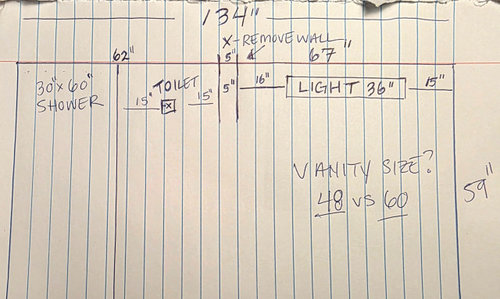 134"
X-REMOVE WALL
62" 5" 67"
30"x60" SHOWER
TOILET
15" X 15" 5" 16" LIGHT 36" 15"
VANITY SIZE?
48 VS 60
59"